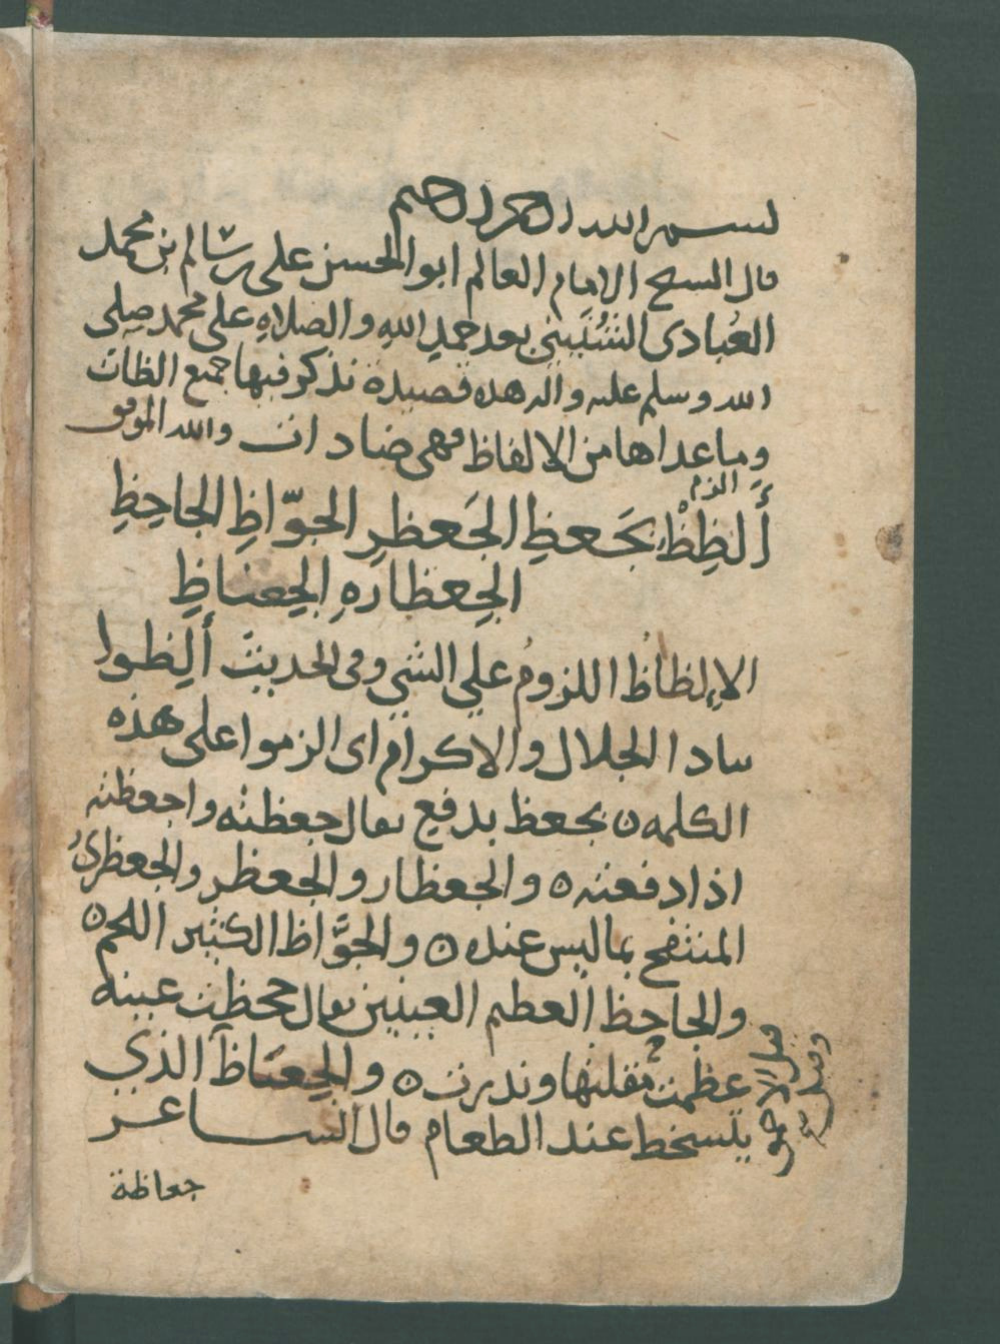 بسم الله الرحمن الرحيم
قال الشيخ الامام العالم ابو الحسن علي بن سالم بن محمد
العُبادي الشُنَيني بعد حمدِ اللهِ والصلاهِ على محمد صلى
الله وسلم عليه واله هذه قصيدة نذكر فيها جميع الظاات
وما عداها من الالفاظ فهي ضادات والله الموفق
الزم
أَلظِظْ بجَعظِ الجَعظرِ الجوّاظِ الجاحِظِ
الجِعظارهِ الجِعناظِ
الإلظاظُ اللزومُ علي الشي وفي الحديث أَلِظوا
بياذا الجلال والاكرام اى الزموا على هذه
الكلمه ٥ بجعظ بدفع يقال جعظته واجعظته
اذا دفعته ٥ والجعظار والجعظر والجعظريُ
المنتفج بما ليس عنده ٥ والجَوَّاظ الكثير اللحم ٥
والجاحظ العظيم العينين يقال جحظت عينه
عظمت مقلتها وندرت ٥ والجِعنَاظ الذي
يتسخط عند الطعام قال الشاعر
وقيل
قيل الاحمق
جعاظة